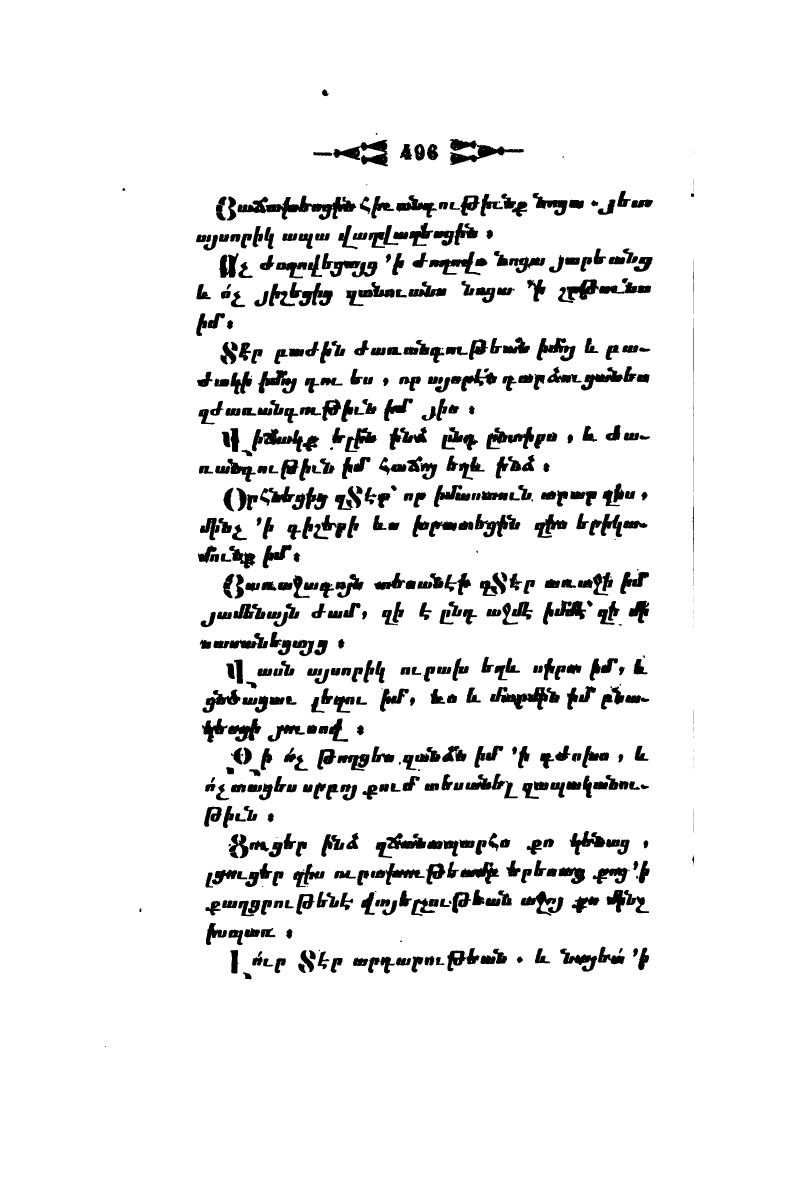 496
Յաճախեցին հիւանդութիւնք նոցա . յետ
այսորիկ ապա վաղվաղեցին ։
Ոչ ժողովեցայց ՚ի ժողովս նոցա յարեանց
և ո՛չ յիշեցից զանուանս նոցա ՚ի շրթունս
իմ ։
Տէր բաժին ժառանգութեան իմոյ և բա֊
ժակի իմոյ դու ես , որ այսրէն դարձուցաներ
զժառանգութիւն իմ յիս ։
Վիճակք ելին ինձ ընդ ընտիրս , և ժա֊
ռանգութիւն իմ հաճոյ եղև ինձ ։
Օրհնեցից զՏէր՝ որ իմաստուն արար զիս ,
մինչ ՚ի գիշերի ևս խրատեցին զիս երիկա֊
մունք իմ ։
Յառաջագոյն տեսանէի զՏէր առաջի իմ
յամենայն ժամ , զի է ընդ աջմէ իմմէ՝ զի մի
սասանեցայց ։
Վասն այսորիկ ուրախ եղև սիրտ իմ , և
ցնծացաւ լեզու իմ , ևս և մարմին իմ բնա֊
կեսցի յուսով ։
Զի ո՛չ թողցես զանձն իմ ՚ի դժոխս , և
ո՛չ տացես սրբոյ քում տեսանել զապականու֊
թիւն ։
Ցուցեր ինձ զճանապարհս քո կենաց ,
լցուցեր զիս ուրախութեամբ երեսաց քոց ՚ի
քաղցրութենէ վայելչութեան աջոյ քո մինչ
իսպառ ։
Լուր Տէր արդարութեան . և նայեա ՚ի